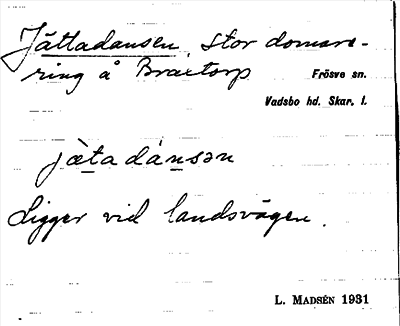 Jättadansen, stor domare-
ring å Braxtorp
Frösve sn.
Vadsbo hd. Skar. l.
jä̀tadánsən
Ligger vid landsvägen.
L. MADSÉN 1931